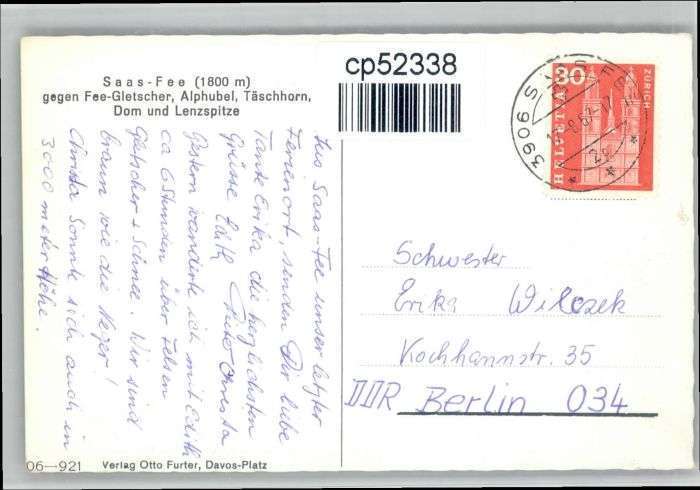 Saas-Fee (1800 m)
gegen Fee-Gletscher, Alphubel, Täschhorn,
Dom und Lenzspitze
cp52338
30
HELVETIA
ZÜRICH
3906 SAAS-FEE
Aus Saas-Fee unser letzter
Ferienort, senden Dir liebe
Tante Erika die herzlichsten
Grüsse Edith Christa
Gestern wanderte ich mit Edith
ca 6 Stunden über Felsen
Gletscher & Schnee. Wir sind
braun wie die Neger!
Christa Sonnte sich auch in
3000 meter Höhe.
Schwester
Erika Wilczek
Kochhannstr. 35
DDR Berlin 034
06—921 Verlag Otto Furter, Davos-Platz